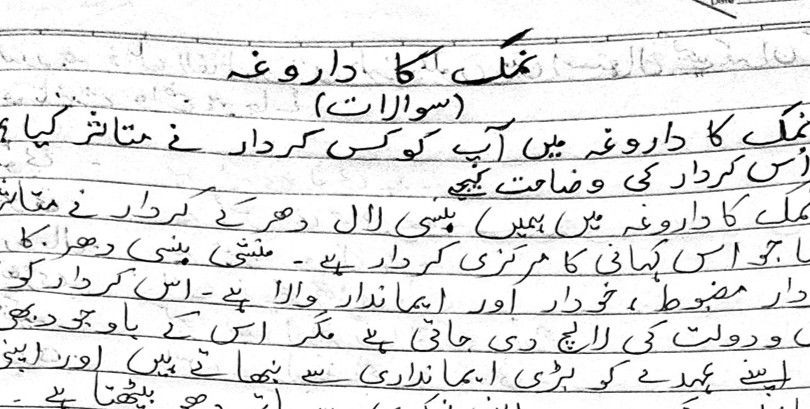 نمک کا داروغہ
(سوالات)
نمک کا داروغہ میں آپ کو کس کردار نے متاثر کیا؟
اُس کردار کی وضاحت کیجیے
نمک کا داروغہ میں ہمیں بنسی لال دھر کے کردار نے متاثر
جو اس کہانی کا مرکزی کردار ہے ۔ منشی بنسی دھر کا
دار مضبوط ، خودار اور ایماندار والا ہے ۔ اس کردار کو
و دولت کی لالچ دی جاتی ہے مگر اس کے باوجود بھی
اپنے عہدے کو بڑی ایمانداری سے نبھاتے ہیں اور اپنی
دھو بیٹھتا ہے ۔